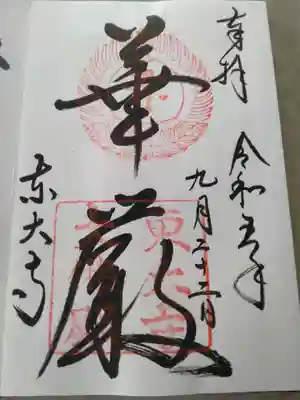 奉拝
令和五年
九月二十二日
華厳
東大寺
東大寺